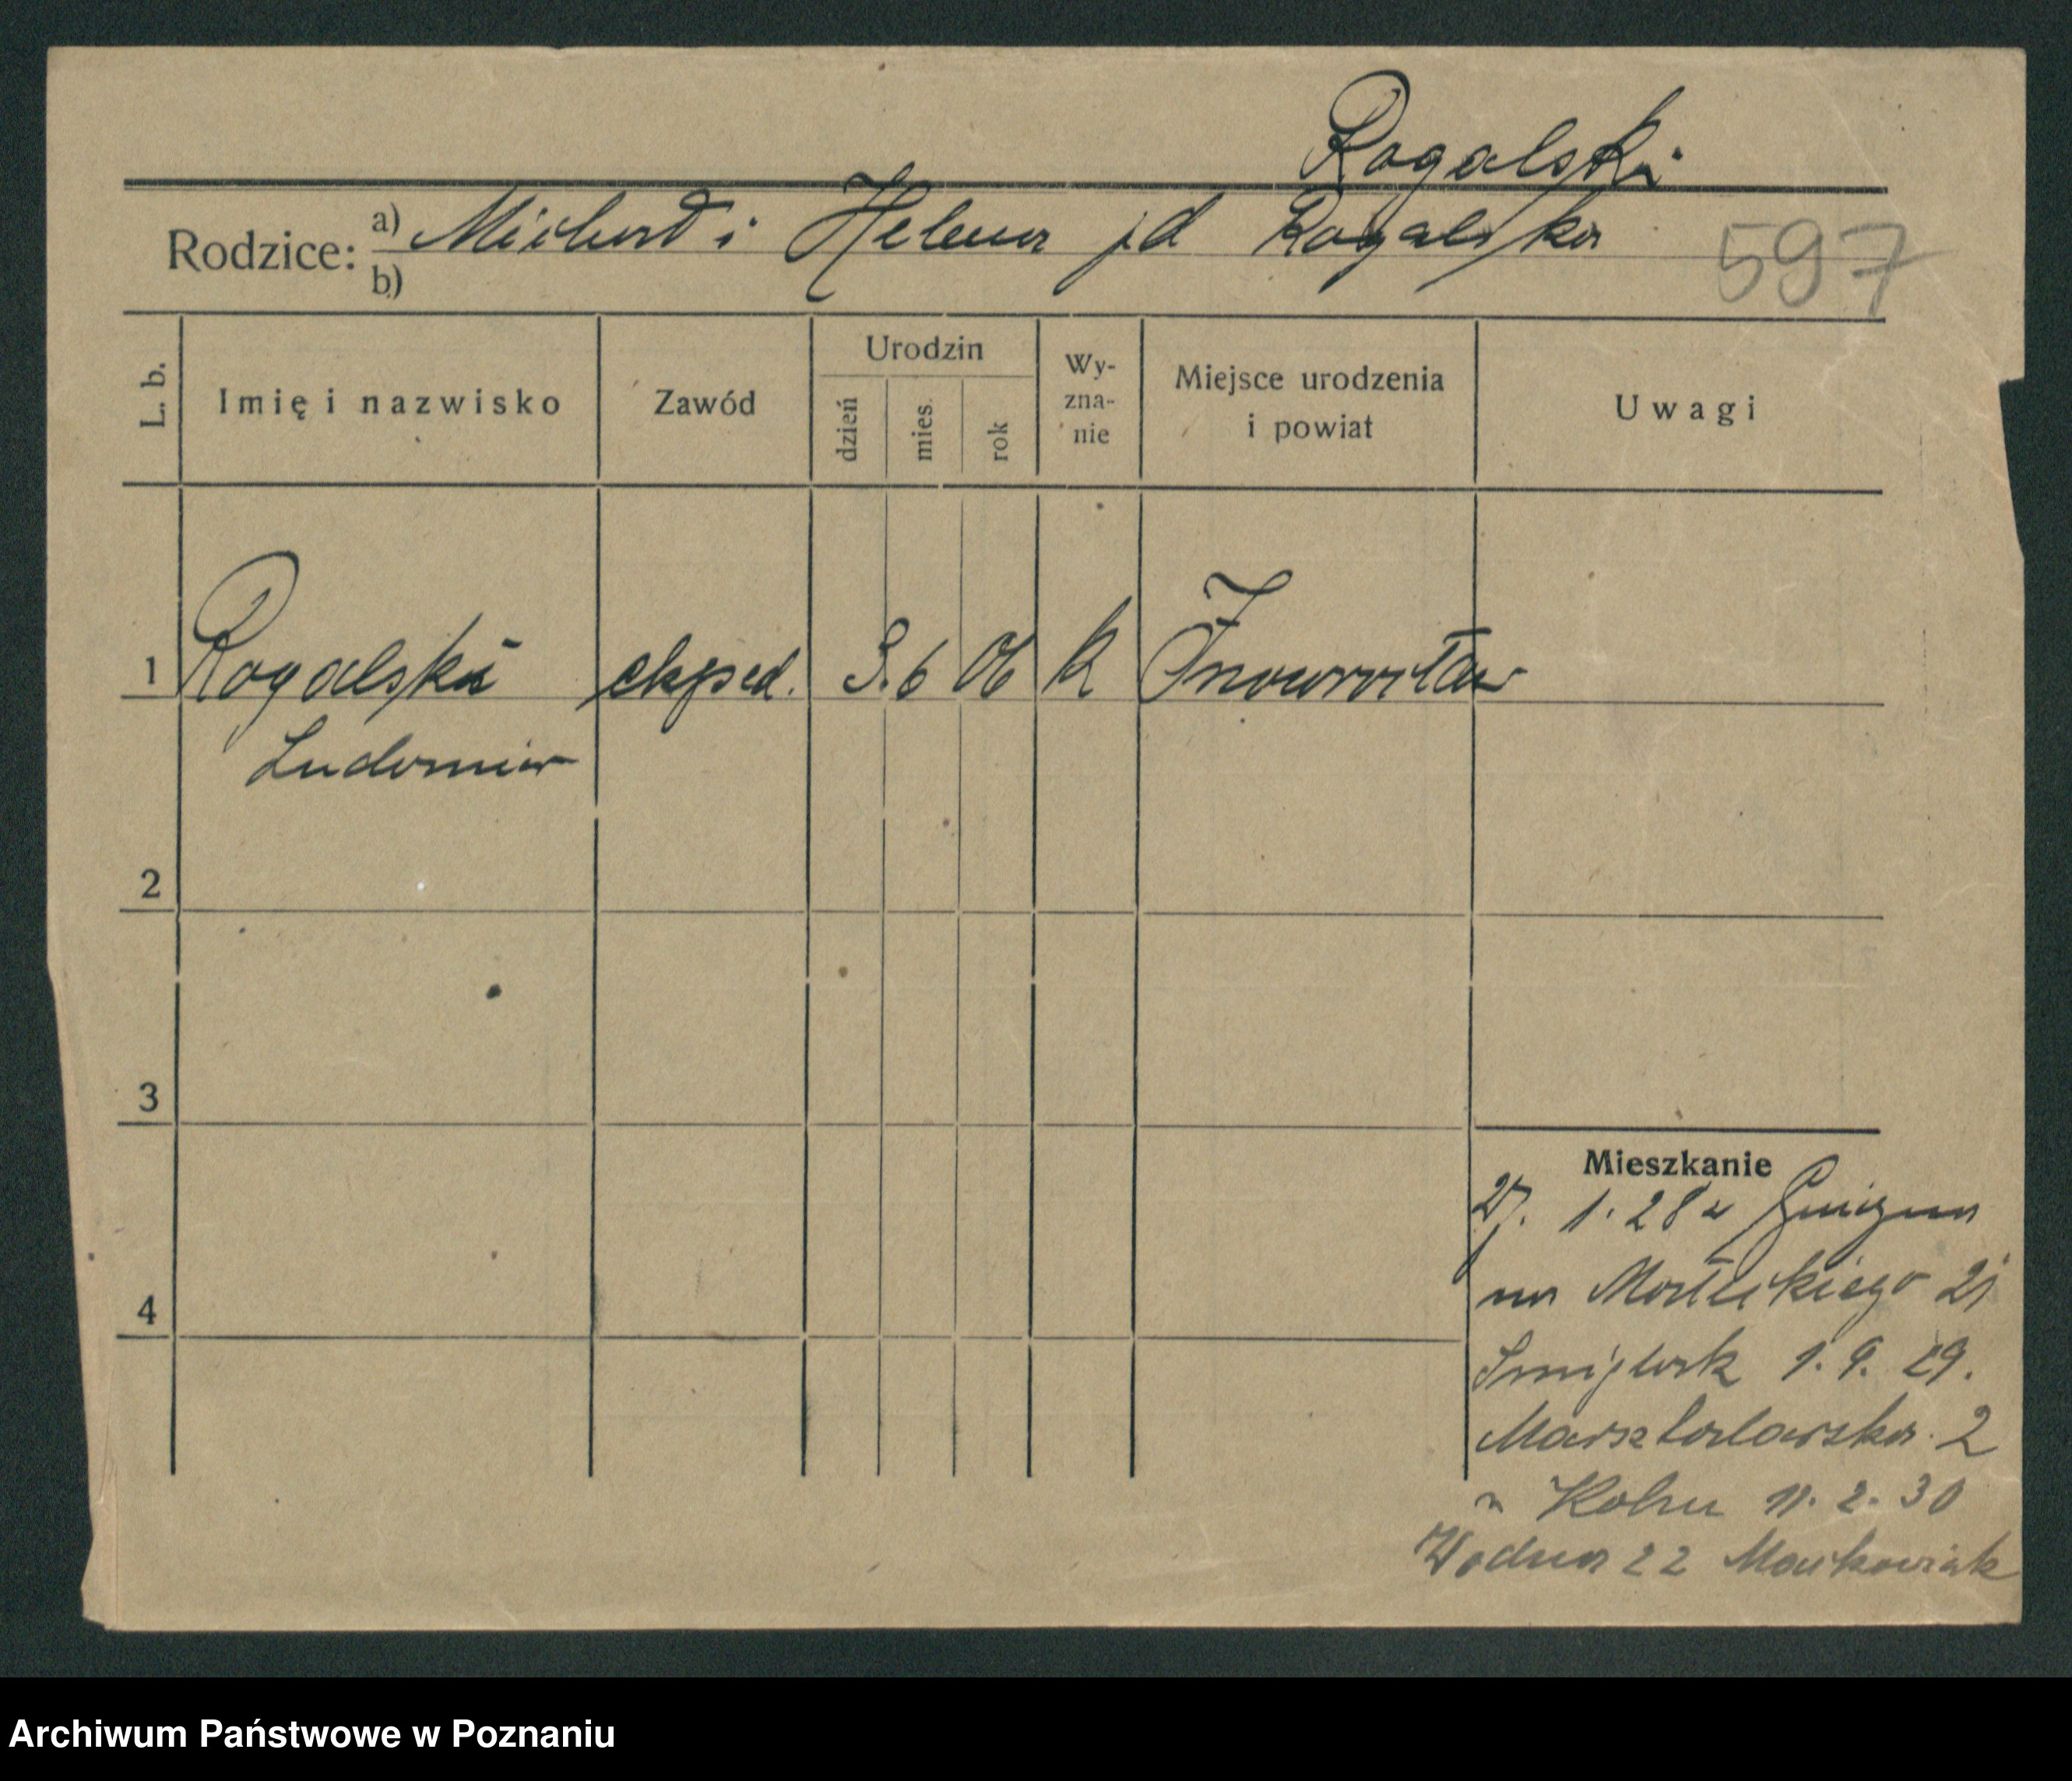 Rogalski
Rodzice: a) Michał i Helena jd Rogalska
b)
597
L. b. Imię i nazwisko Zawód Urodzin dzień mies. rok Wy-zna-nie Miejsce urodzenia i powiat Uwagi
1 Rogalski eksped. 3. 6 06 k Inowrocław
Ludomir
2
3
Mieszkanie
27. 1. 28 z Gniezna
4
na Małeckiego 21
1. 9. 29.
Masztalarska 2
z Koła 11. 2. 30
Wodna 22 Maćkowiak
Archiwum Państwowe w Poznaniu